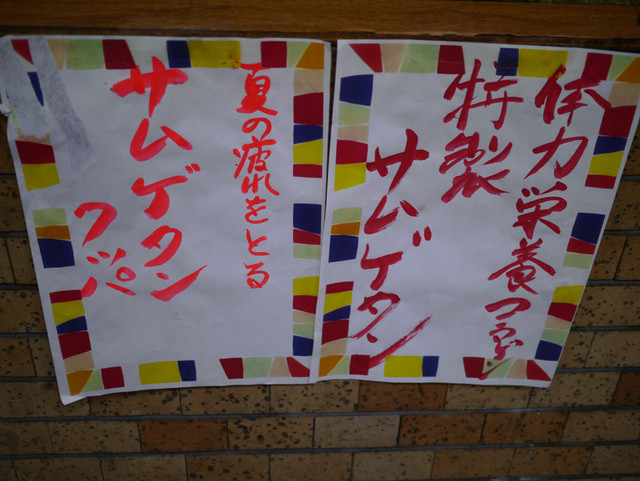 体力栄養つけ
特製
サムゲタン
夏の疲れをとる
サムゲタン
クッパ